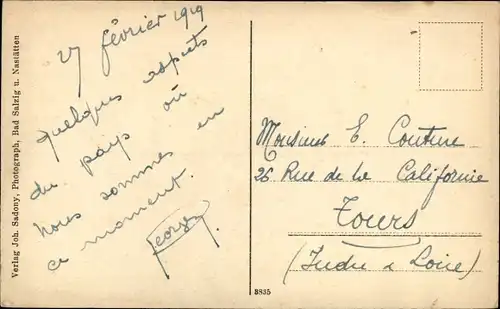 Verlag Joh. Sadony, Photograph, Bad Salzig u. Nastätten
27 février 1919
Quelques aspects
du pays où
nous sommes en
ce moment.
Georges
3835
Monsieur E. Couture
26 Rue de la Californie
Tours
(Indre & Loire)